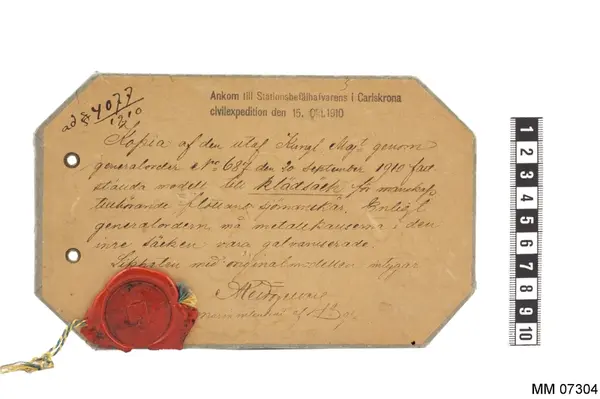 ad № 4077
1910
Ankom till Stationsbefälhafvarens i Carlskrona
civilexpedition den 15. Okt. 1910
Kopia af den utaf Kungl Maj:t genom
generalorder № 687 den 20 september 1910 fast-
stälda modell till klädsäck för manskap
tillhörande flottans sjömanskår. Enligt
generalordern må metallhauserna i den
inre säcken vara galvaniserade.
Likheten med originalmodellen intygar
1
2
3
4
5
6
7
8
9
10
MM 07304